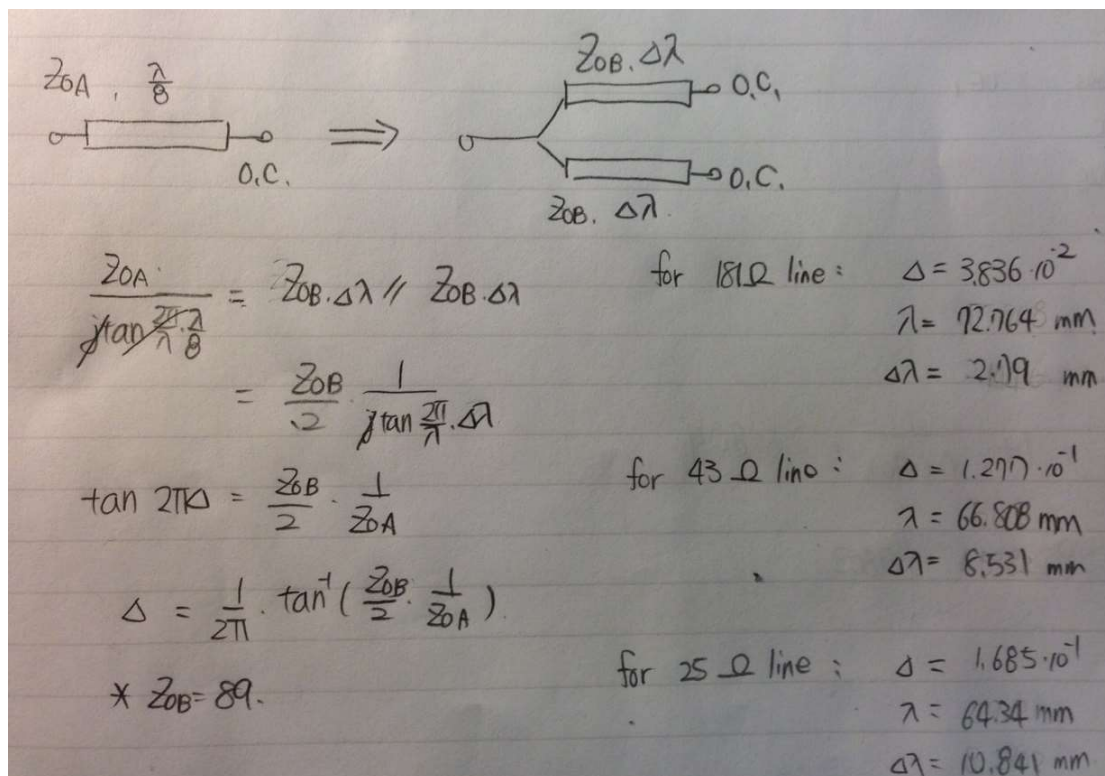 Z0A , λ/8
O.C.
⇒
Z0B. Δλ
O.C.
O.C.
Z0B. Δλ.
Z0A / (j tan 2π/λ · λ/8) = Z0B · Δλ // Z0B · Δλ
= Z0B/2 · 1 / (j tan 2π/λ · Δλ)
tan 2πΔ = Z0B/2 · 1/Z0A
Δ = 1/2π · tan⁻¹ ( Z0B/2 · 1/Z0A )
* Z0B = 89.
for 181Ω line : Δ = 3.836·10⁻²
λ = 72.764 mm
Δλ = 2.79 mm
for 43 Ω line : Δ = 1.277·10⁻¹
λ = 66.808 mm
Δλ = 8.531 mm
for 25 Ω line : Δ = 1.685·10⁻¹
λ = 64.34 mm
Δλ = 10.841 mm